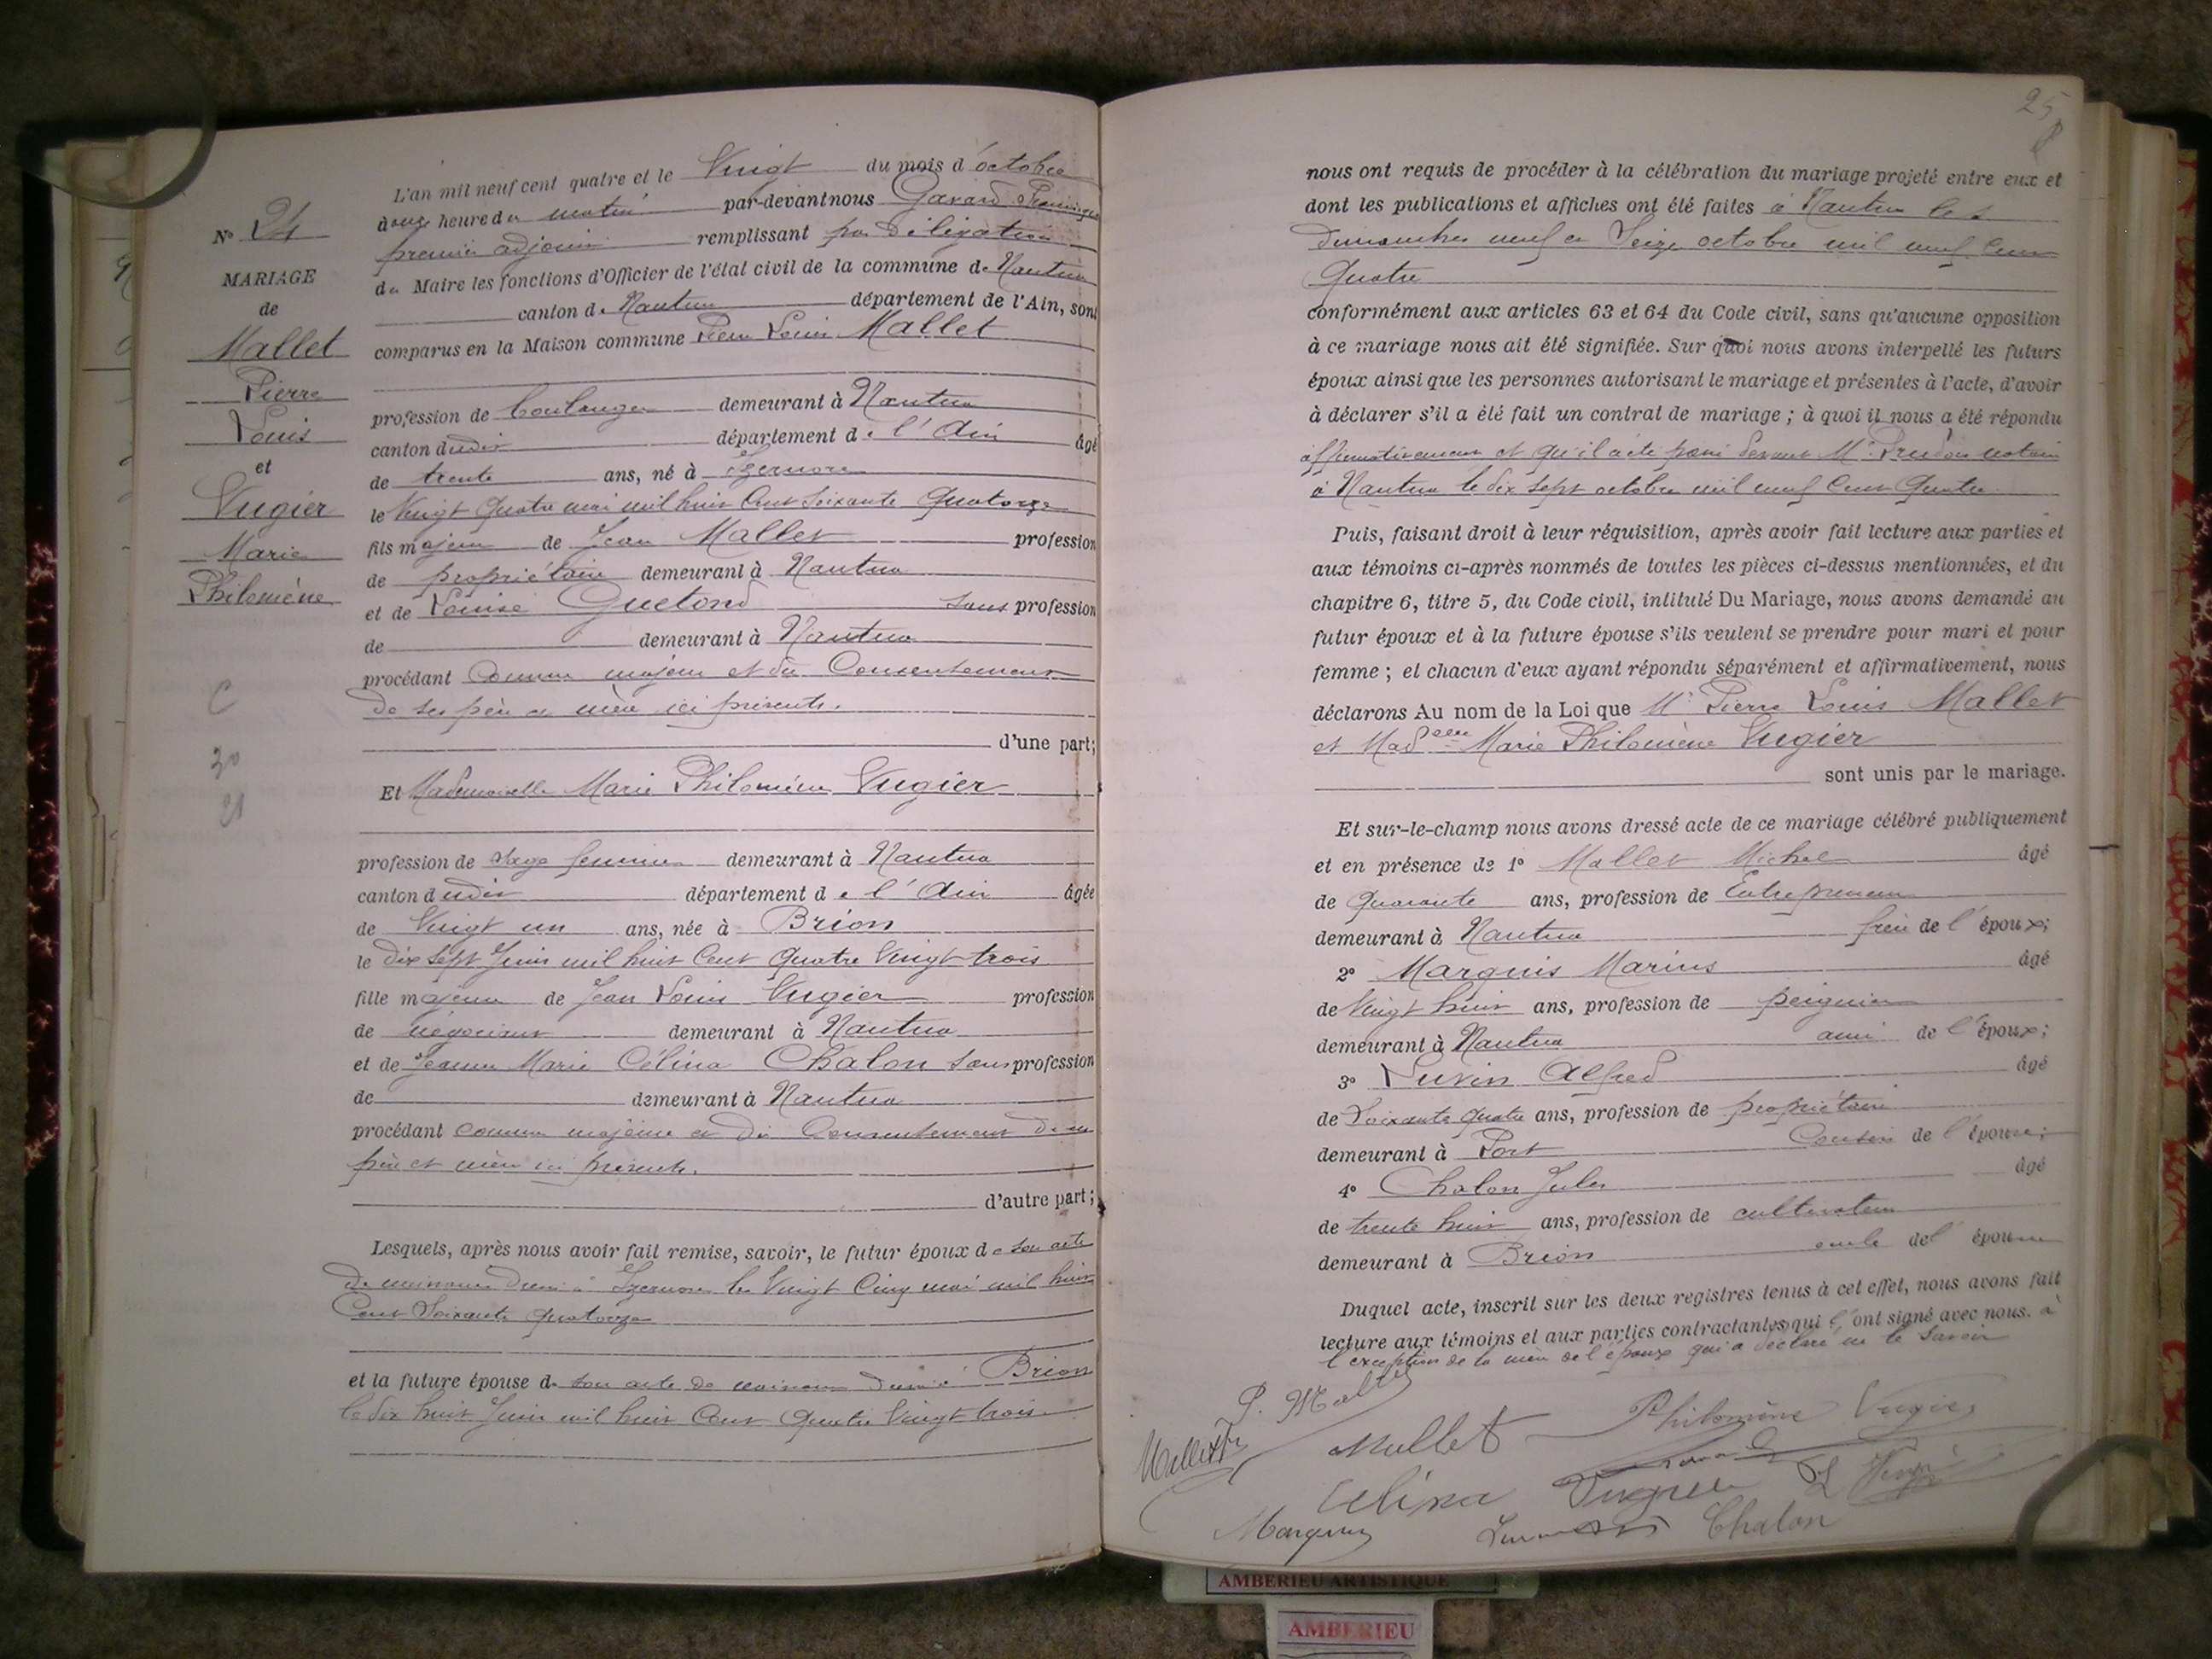 L'an mil neuf cent quatre et le Vingt du mois d'octobre
heure du matin par-devant nous Gavard
premier adjoint remplissant par Délégation
du Maire les fonctions d'Officier de l'état civil de la commune de Nantua
canton de Nantua département de l'Ain, sont
comparus en la Maison commune Pierre Louis Mallet
profession de boulanger demeurant à Nantua
canton dudit département de l'Ain âgé
de trente ans, né à Izernore
le Vingt Quatre mai mil huit Cent Soixante Quatorze
fils majeur de Jean Mallet profession
de propriétaire demeurant à Nantua
et de Louise Guetond sans profession
de demeurant à Nantua
procédant Comme majeur et du Consentement
de ses père et mère ici présents.
d'une part;
Et Mademoiselle Marie Philomène Vugier
profession de Sage femme demeurant à Nantua
canton dudit département de l'Ain âgée
de Vingt un ans, née à Brion
le dix sept Juin mil huit Cent Quatre Vingt trois
fille majeure de Jean Louis Vugier profession
de négociant demeurant à Nantua
et de Jeanne Marie Célina Chalon Sans profession
de demeurant à Nantua
procédant comme majeure et du Consentement de ses
père et mère ici présents.
d'autre part;
Lesquels, après nous avoir fait remise, savoir, le futur époux de son acte
de naissance dressé à Izernore le Vingt Cinq mai mil huit
Cent Soixante quatorze
et la future épouse de son acte de naissance dressé à Brion
le dix huit Juin mil huit Cent Quatre Vingt trois
No 24
MARIAGE
de
Mallet
Pierre
Louis
et
Vugier
Marie
Philomène
C
30
21
25
nous ont requis de procéder à la célébration du mariage projeté entre eux et
dont les publications et affiches ont été faites à Nantua les
Dimanches neuf et Seize octobre mil neuf Cent
Quatre
conformément aux articles 63 et 64 du Code civil, sans qu'aucune opposition
à ce mariage nous ait été signifiée. Sur quoi nous avons interpellé les futurs
époux ainsi que les personnes autorisant le mariage et présentes à l'acte, d'avoir
à déclarer s'il a été fait un contrat de mariage; à quoi il nous a été répondu
affirmativement et qu'il a été passé devant Me Prudon notaire
à Nantua le dix sept octobre mil neuf Cent Quatre
Puis, faisant droit à leur réquisition, après avoir fait lecture aux parties et
aux témoins ci-après nommés de toutes les pièces ci-dessus mentionnées, et du
chapitre 6, titre 5, du Code civil, intitulé Du Mariage, nous avons demandé au
futur époux et à la future épouse s'ils veulent se prendre pour mari et pour
femme; et chacun d'eux ayant répondu séparément et affirmativement, nous
déclarons Au nom de la Loi que Mr Pierre Louis Mallet
et Madelle Marie Philomène Vugier
sont unis par le mariage.
Et sur-le-champ nous avons dressé acte de ce mariage célébré publiquement
et en présence de 1° Mallet Michel âgé
de Quarante ans, profession de Entrepreneur
demeurant à Nantua frère de l'époux;
2° Marquis Marius âgé
de Vingt huit ans, profession de peignier
demeurant à Nantua ami de l'époux;
3° Luvin Alfred âgé
de Soixante quatre ans, profession de propriétaire
demeurant à Port Cousin de l'épouse;
4° Chalon Jules âgé
de trente huit ans, profession de cultivateur
demeurant à Brion oncle de l'épouse
Duquel acte, inscrit sur les deux registres tenus à cet effet, nous avons fait
lecture aux témoins et aux parties contractantes qui l'ont signé avec nous. à
l'exception de la mère de l'époux qui a déclaré ne le savoir
P. Mallet
Mallet
Mallet
Philomène Vugier
Célina Vugier
Marquis
Chalon
AMBERIEU ARTISTIQUE
AMBERIEU